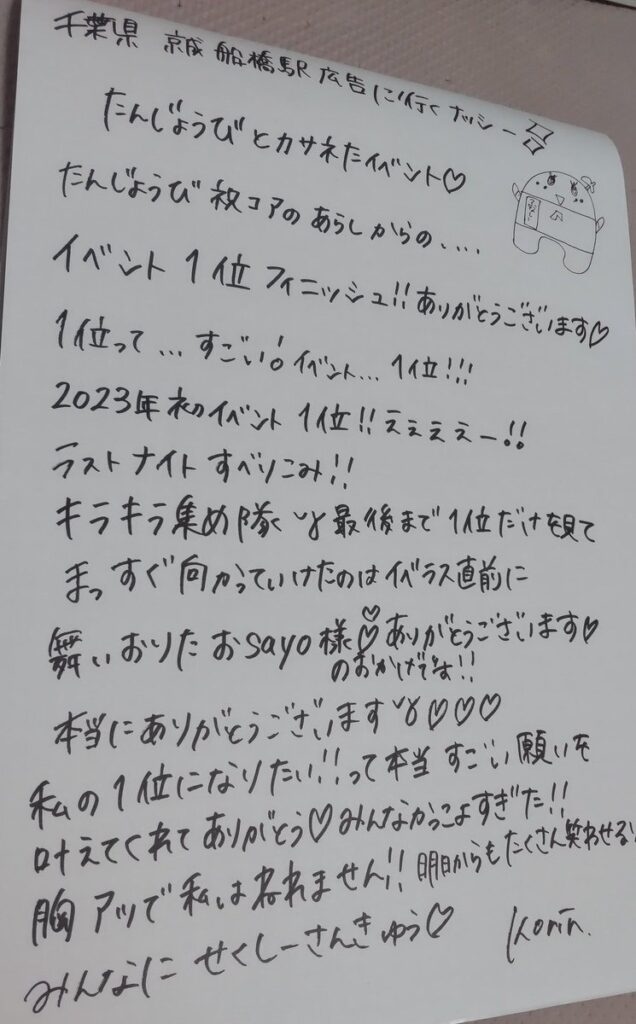 千葉県 京成船橋駅広告に行くナッシー
たんじょうびとカサネたイベント♡
たんじょうび枚コアのあらしからの....
イベント1位フィニッシュ!!ありがとうございます♡
1位って...すごい!イベント...1位!!!
2023年初イベント1位!!えぇぇぇー!!
ラストナイトすべりこみ!!
キラキラ集め隊 最後まで1位だけを見て
まっすぐ向かっていけたのはイベラス直前に
舞いおりたおsayo様♡ありがとうございます♡
のおかげです!!
本当にありがとうございます♡♡♡
私の1位になりたい!!って本当すごい願いを
叶えてくれてありがとう♡みんなかっこよすぎた!!
胸アツで私はねれません!!明日からもたくさん笑わせる!
みんなに せくしーさんきゅう♡ Korin.